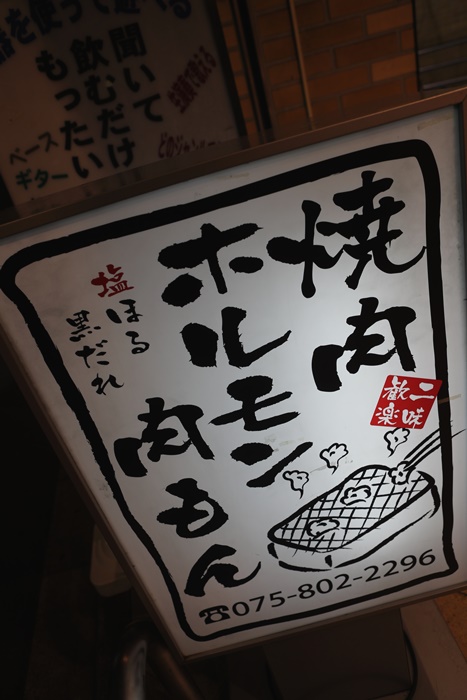 焼肉
ホルモン
肉もん
塩ほる
黒だれ
二味
歓楽
☎075-802-2296
を使って遊べる
聞いて
飲むだけ
もったい
ベース
ギター